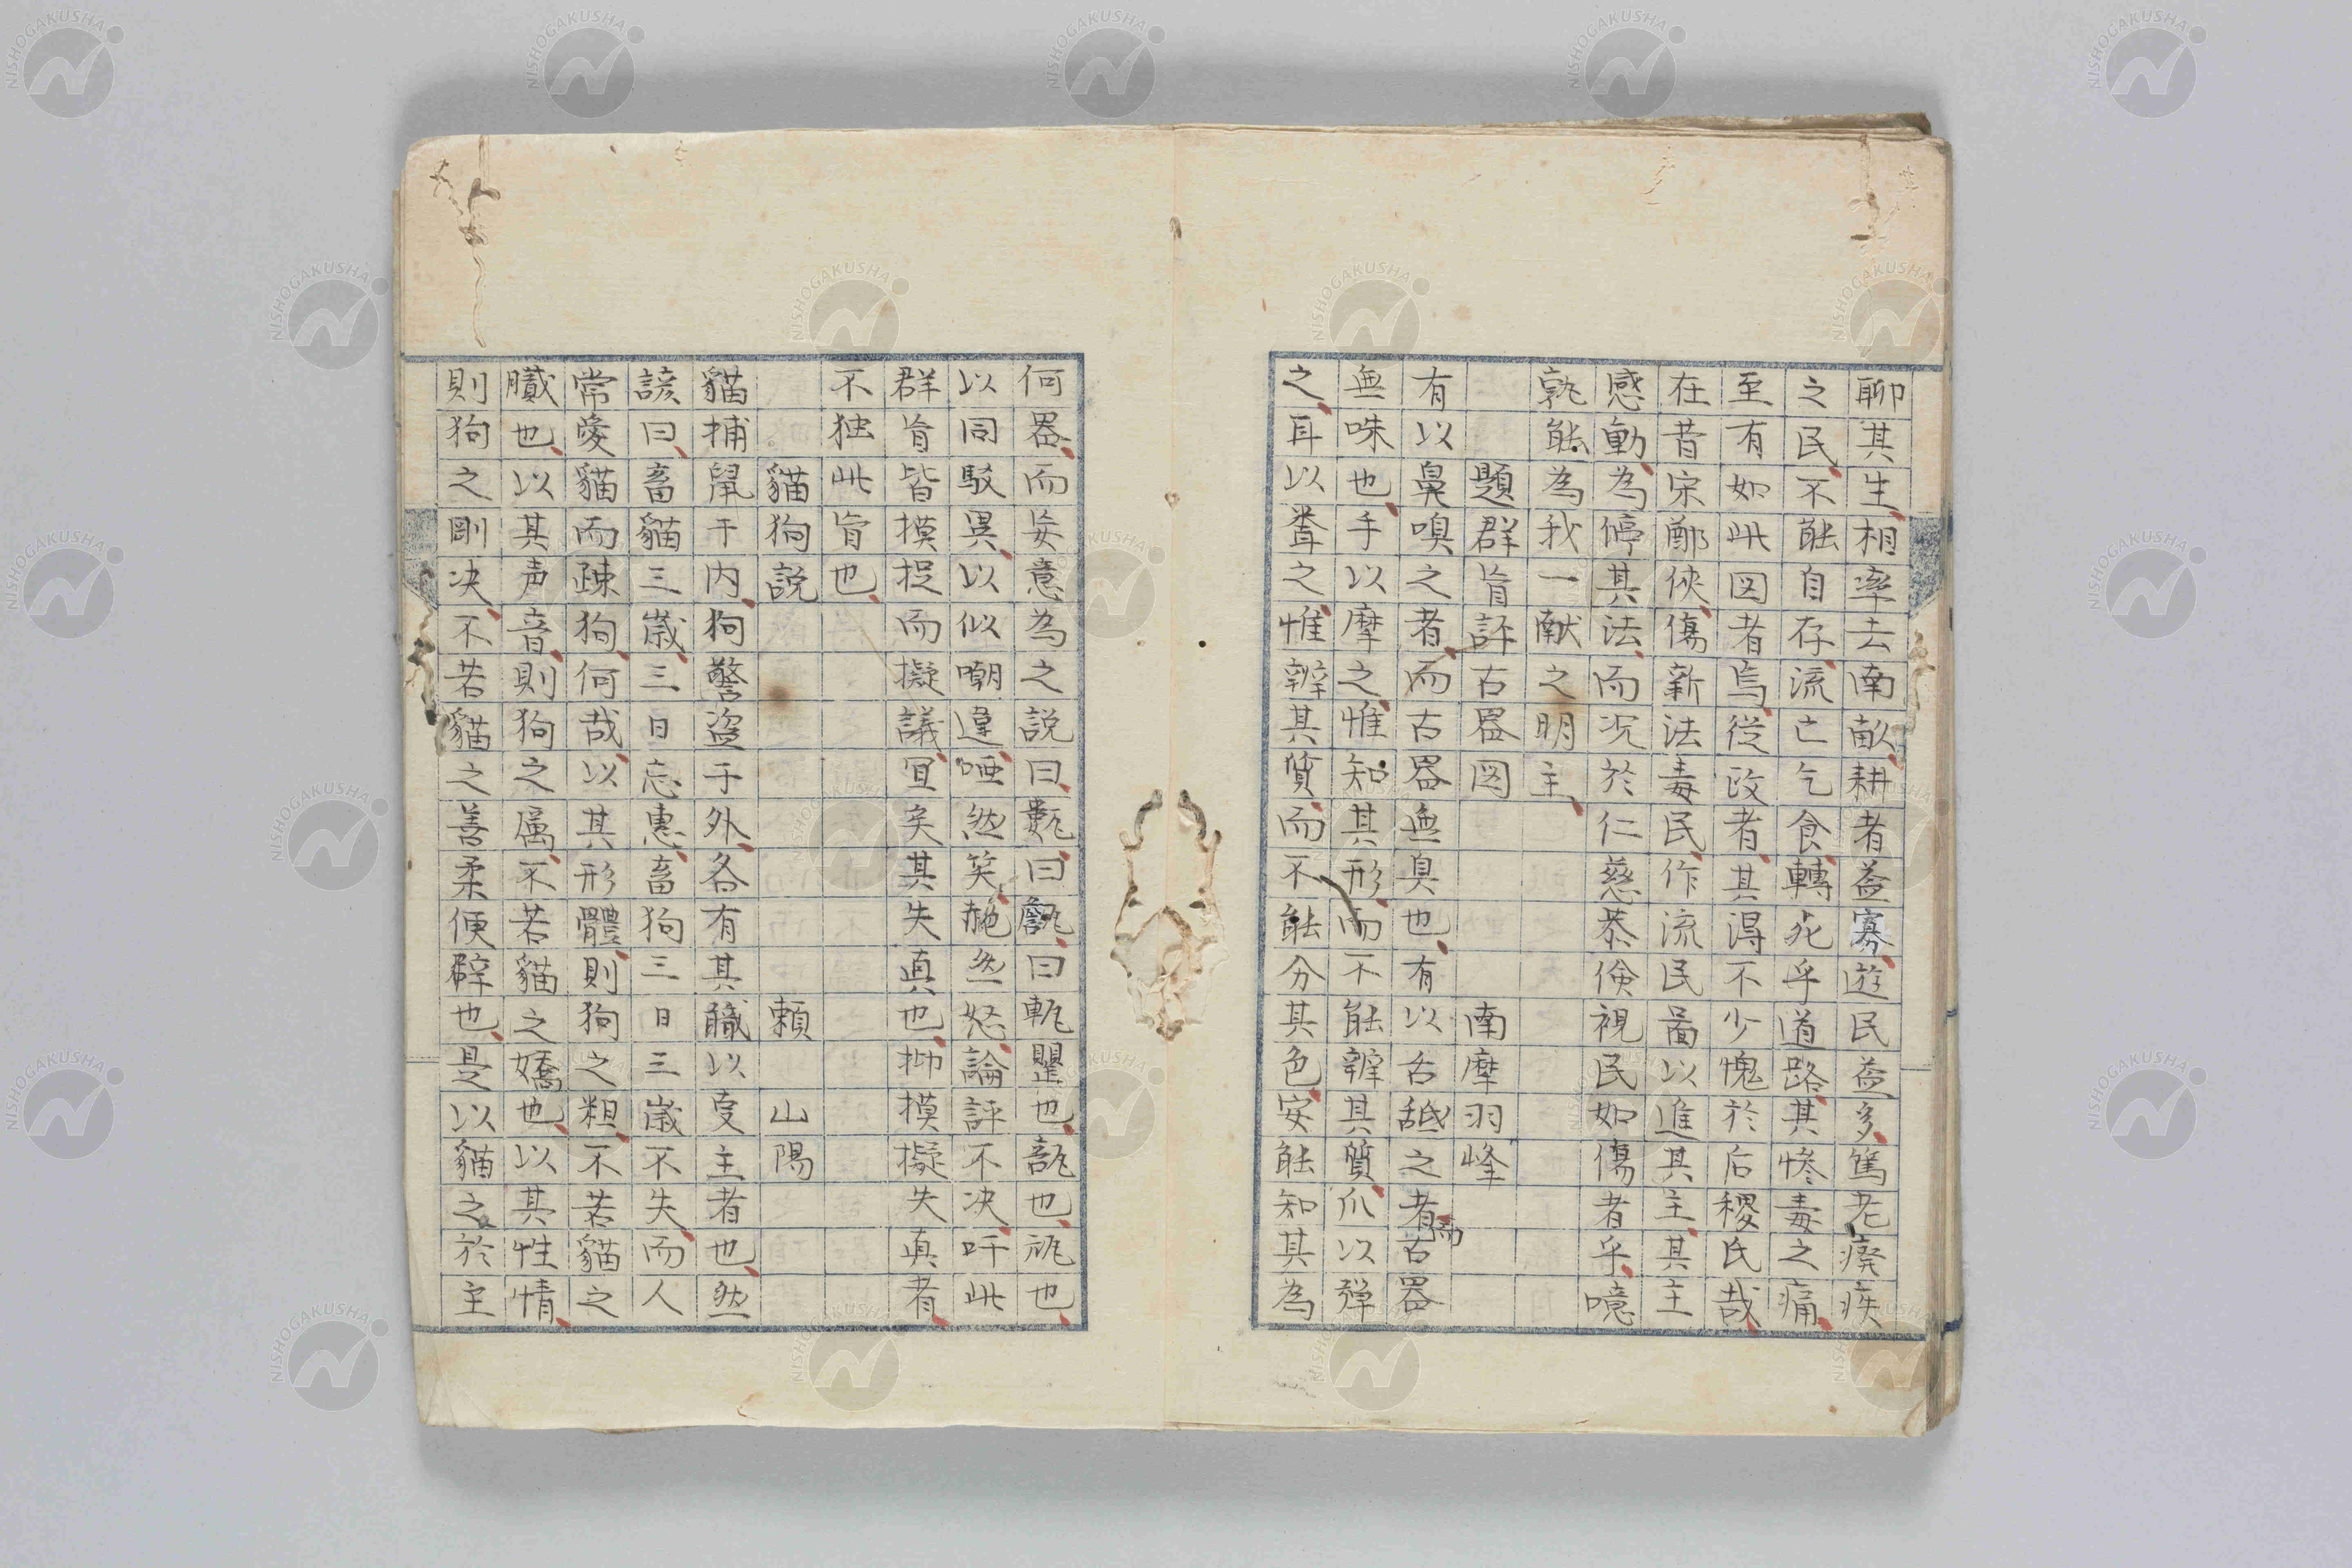 聊其生相率去南畝耕者益寡遊民益多篤老癈疾
之民不能自存流亡乞食轉死乎道路其惨毒之痛
至有如此図者焉従政者其淂不少愧於后稷氏哉
在昔宋鄭侠傷新法毒民作流民啚以進其主其主
感動為停其法而况於仁慈恭倹視民如傷者乎噫
孰能為我一献之明主
題群盲評古器図 南摩羽峰
有以鼻嗅之者而古器無臭也有以舌舐之者而古器
無味也手以摩之惟知其形而不能辨其質爪以弾
之耳以聋之惟辨其質而不能分其色安能知其為
何器而妄意為之説曰甎曰甑曰瓶罌也瓿也瓶也
以同駁異以似嘲違唖然笑艴然怒論評不决吁此
群盲皆摸捉而擬議冝矣其失真也抑摸擬失真者
不独此盲也
貓狗説 頼山陽
貓捕鼠于内狗警盗于外各有其職以受主者也然
諺曰畜貓三歳三日忘惠畜狗三日三歳不失而人
常愛貓而疎狗何哉以其形體則狗之粗不若貓之
膩也以其声音則狗之属不若貓之嬌也以其性情
則狗之剛决不若貓之善柔便辟也是以貓之於主
NISHOGAKUSHA